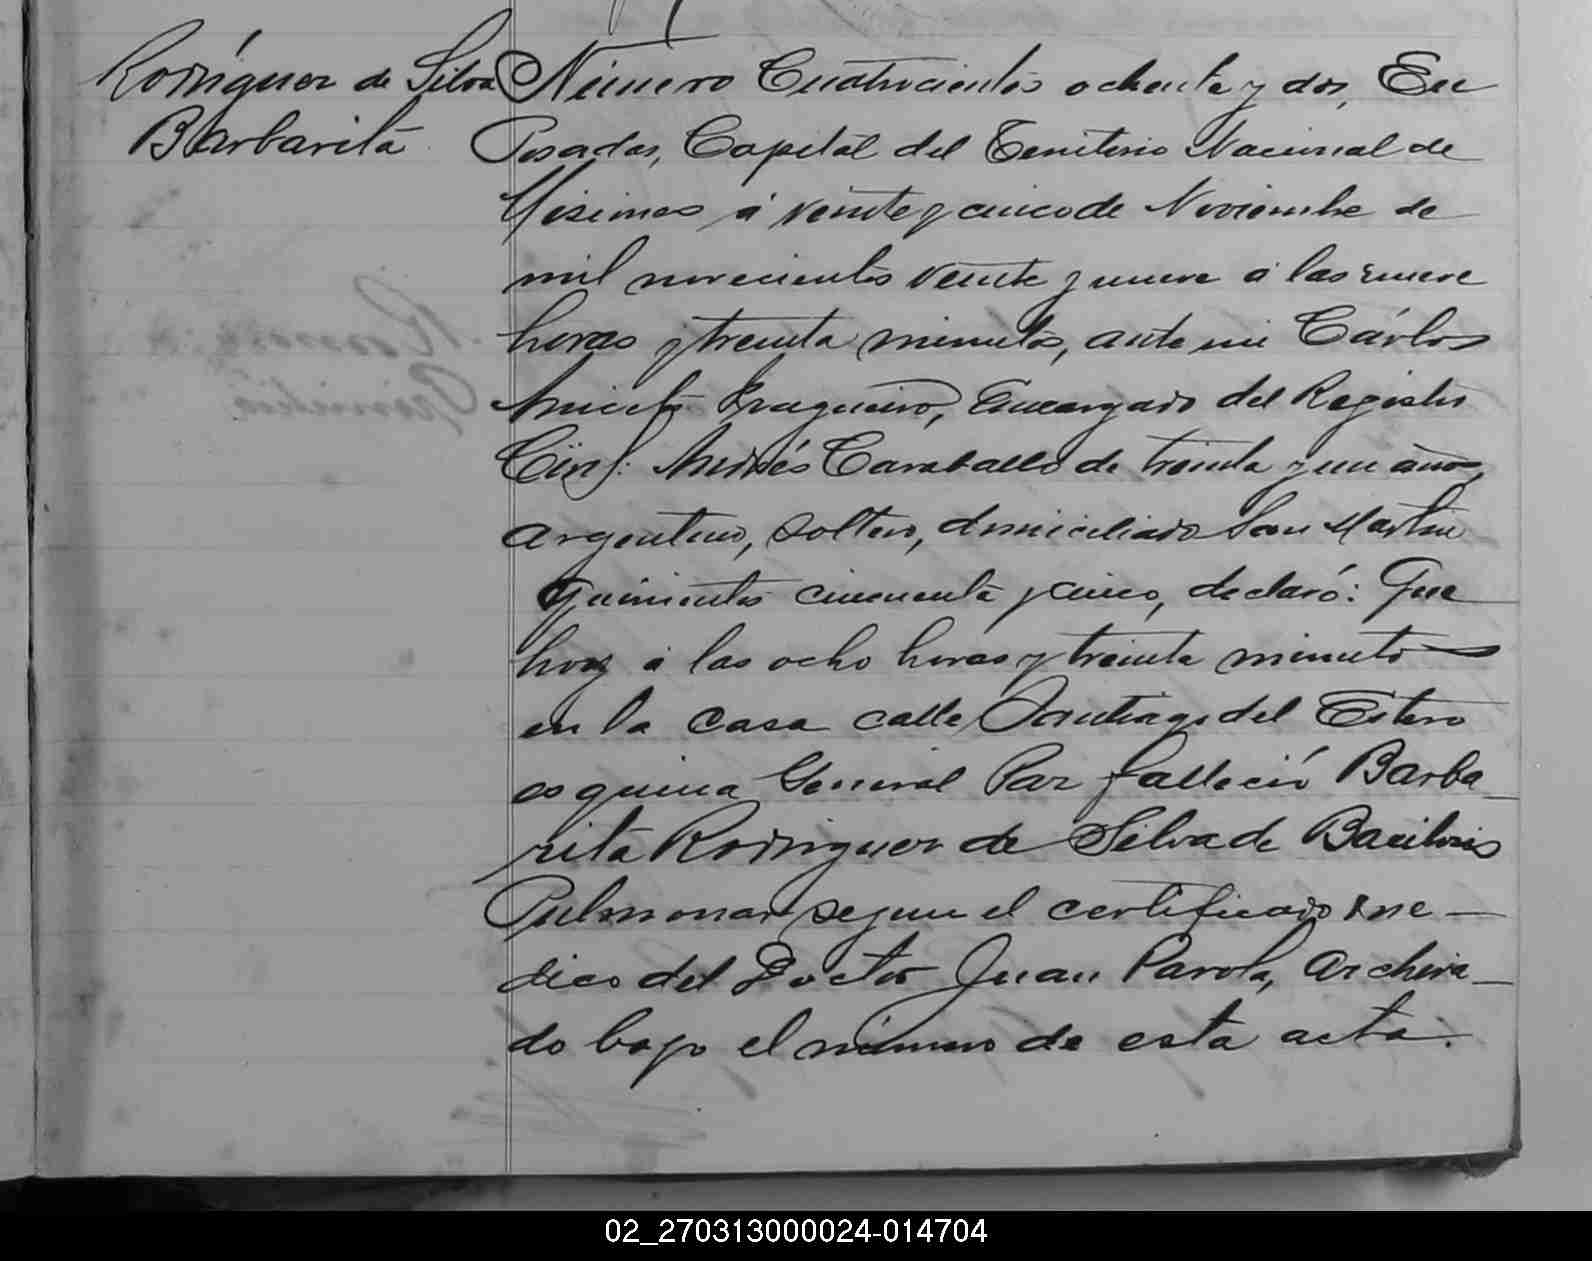 Rodríguez de Silva
Barbarita
Número Cuatrocientos ochenta y dos, En
Posadas, Capital del Territorio Nacional de
Misiones á veinte y cinco de Noviembre de
mil novecientos veinte y nueve á las nueve
horas y treinta minutos, ante mi Cárlos
Aniceto Fragueiro, Encargado del Registro
Civil: Andrés Caraballo de treinta y un años,
argentino, soltero, domiciliado San Martin
quinientos cincuenta y cinco, declaró: Que
hoy á las ocho horas y treinta minutos
en la casa calle Santiago del Estero
esquina General Paz falleció Barba
rita Rodriguez de Silva de Bacilosis
Pulmonar segun el certificado me-
dico del Doctor Juan Parola, archiva-
do bajo el número de esta acta.
02_270313000024-014704